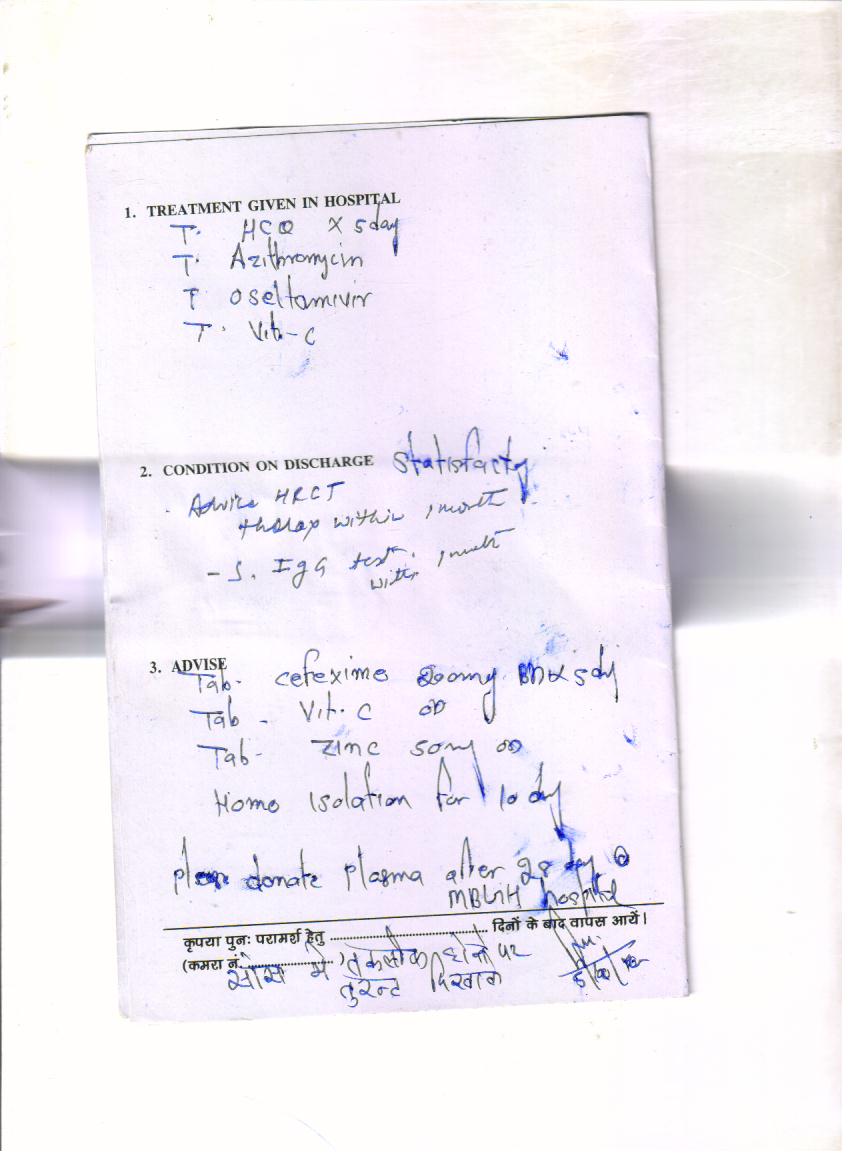 1. TREATMENT GIVEN IN HOSPITAL
T. HCQ X 5 day
T. Azithromycin
T. Oseltamivir
T. Vit-C
2. CONDITION ON DISCHARGE Statisfacty
Advice HRCT
thorax within 1 month
- S. IgG test
within 1 month
3. ADVISE
Tab- cefexime 200mg BD x 5 dy
Tab - Vit. C OD
Tab- zinc 50mg OD
Home Isolation for 10 dy
donate plasma after 28 day @
MBGH hospital
कृपया पुनः परामर्श हेतु ........................................ दिनों के बाद वापस आयें।
(कमरा नं. ....................)
सांस में तकलीफ होने पर
तुरन्त दिखावें